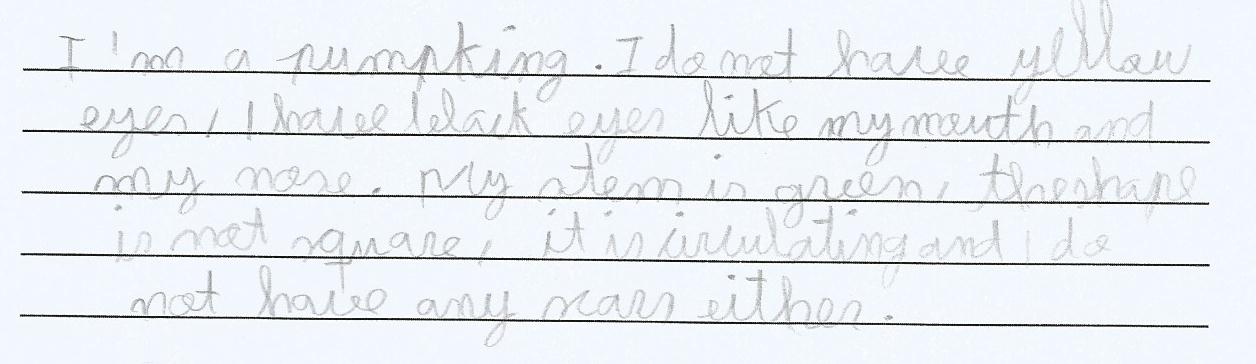 I'm a pumpking. I do not have yllow
eyes, I have black eyes like my mouth and
my nose. My stem is green, the shape
is not square, it is circulating and I do
not have any scars either.